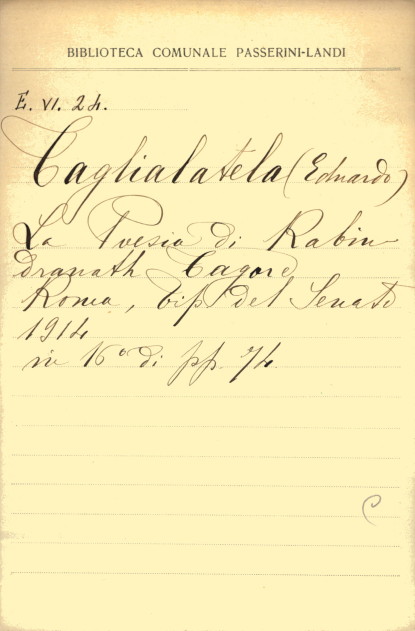 BIBLIOTECA COMUNALE PASSERINI-LANDI
E. VI. 24.
Taglialatela (Eduardo)
La Poesia di Rabin
dranath Tagore
Roma, Tip. del Senato
1914
in 16° di pp. 74